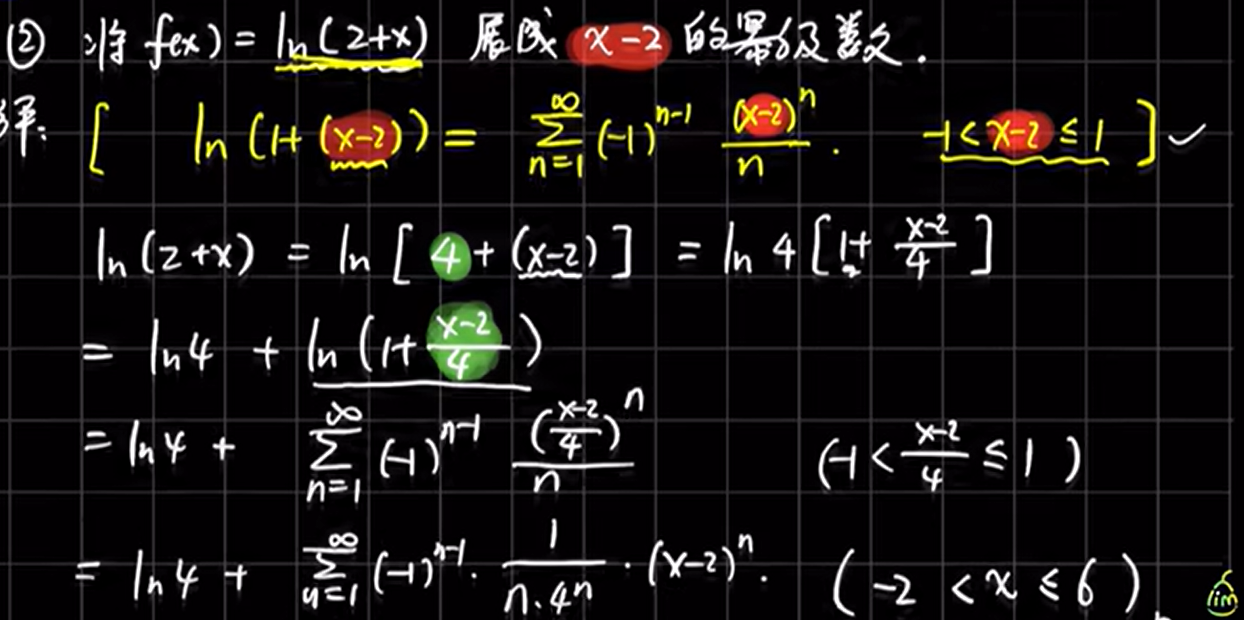 ② 将 f(x) = ln(2+x) 展成 x-2 的幂级数.
解: [ ln(1+(x-2)) = ∑_{n=1}^{∞} (-1)^{n-1} (x-2)^n / n . -1 < x-2 ≤ 1 ] ✓
ln(2+x) = ln[4+(x-2)] = ln 4[1+ (x-2)/4]
= ln4 + ln(1+ (x-2)/4)
= ln4 + ∑_{n=1}^{∞} (-1)^{n-1} ((x-2)/4)^n / n (-1 < (x-2)/4 ≤ 1)
= ln4 + ∑_{n=1}^{∞} (-1)^{n-1} · 1/(n·4^n) · (x-2)^n. (-2 < x ≤ 6)
lim